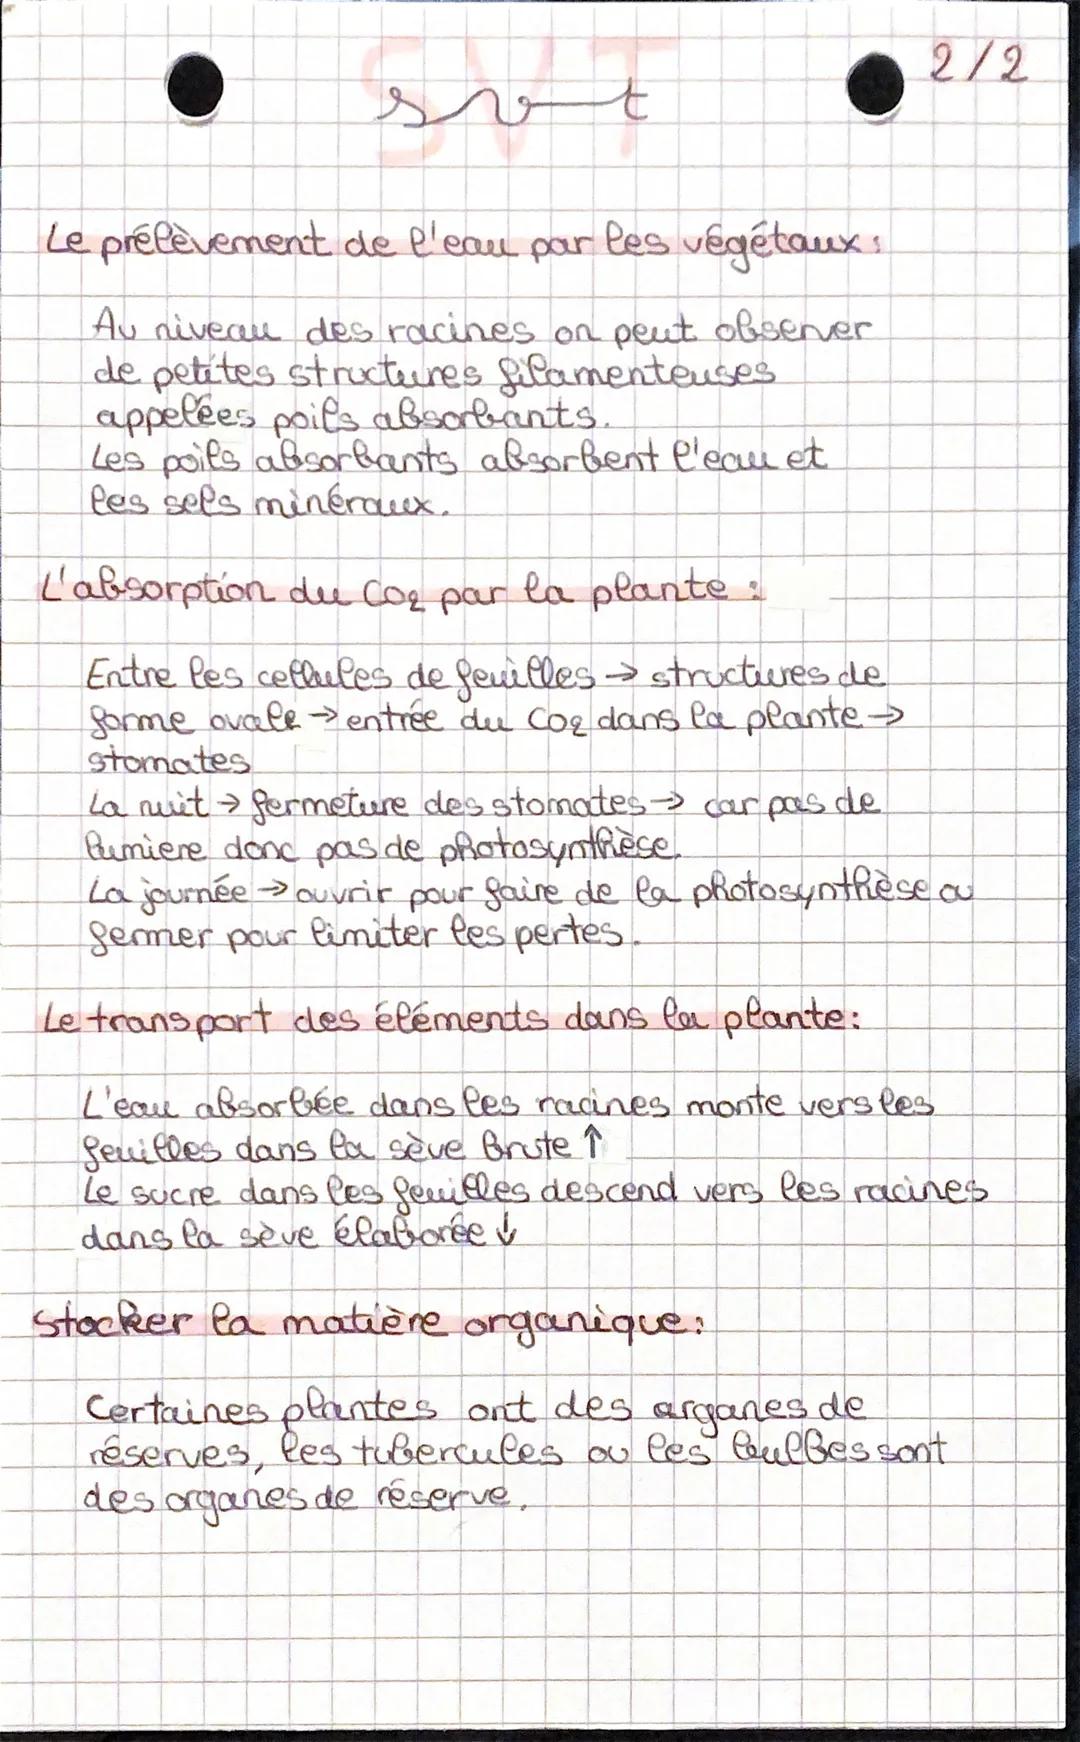 2/2
SVT
svt
Le prélèvement de l'eau par les végétaux :
Au niveau des racines on peut observer
de petites structures filamenteuses
appelées poils absorbants.
Les poils absorbants absorbent l'eau et
les sels minéraux.
L'absorption du CO2 par la plante :
Entre les cellules de feuilles → structures de
forme ovale → entrée du CO2 dans la plante →
stomates
La nuit → fermeture des stomates → car pas de
lumiere donc pas de photosynthèse.
La journée → ouvrir pour faire de la photosynthèse ou
fermer pour limiter les pertes.
Le transport des éléments dans la plante :
L'eau absorbée dans les racines monte vers les
feuilles dans la sève brute ↑
Le sucre dans les feuilles descend vers les racines
dans la sève élaborée ↓
Stocker la matière organique :
Certaines plantes ont des organes de
réserves, les tubercules ou les bulbes sont
des organes de réserve.